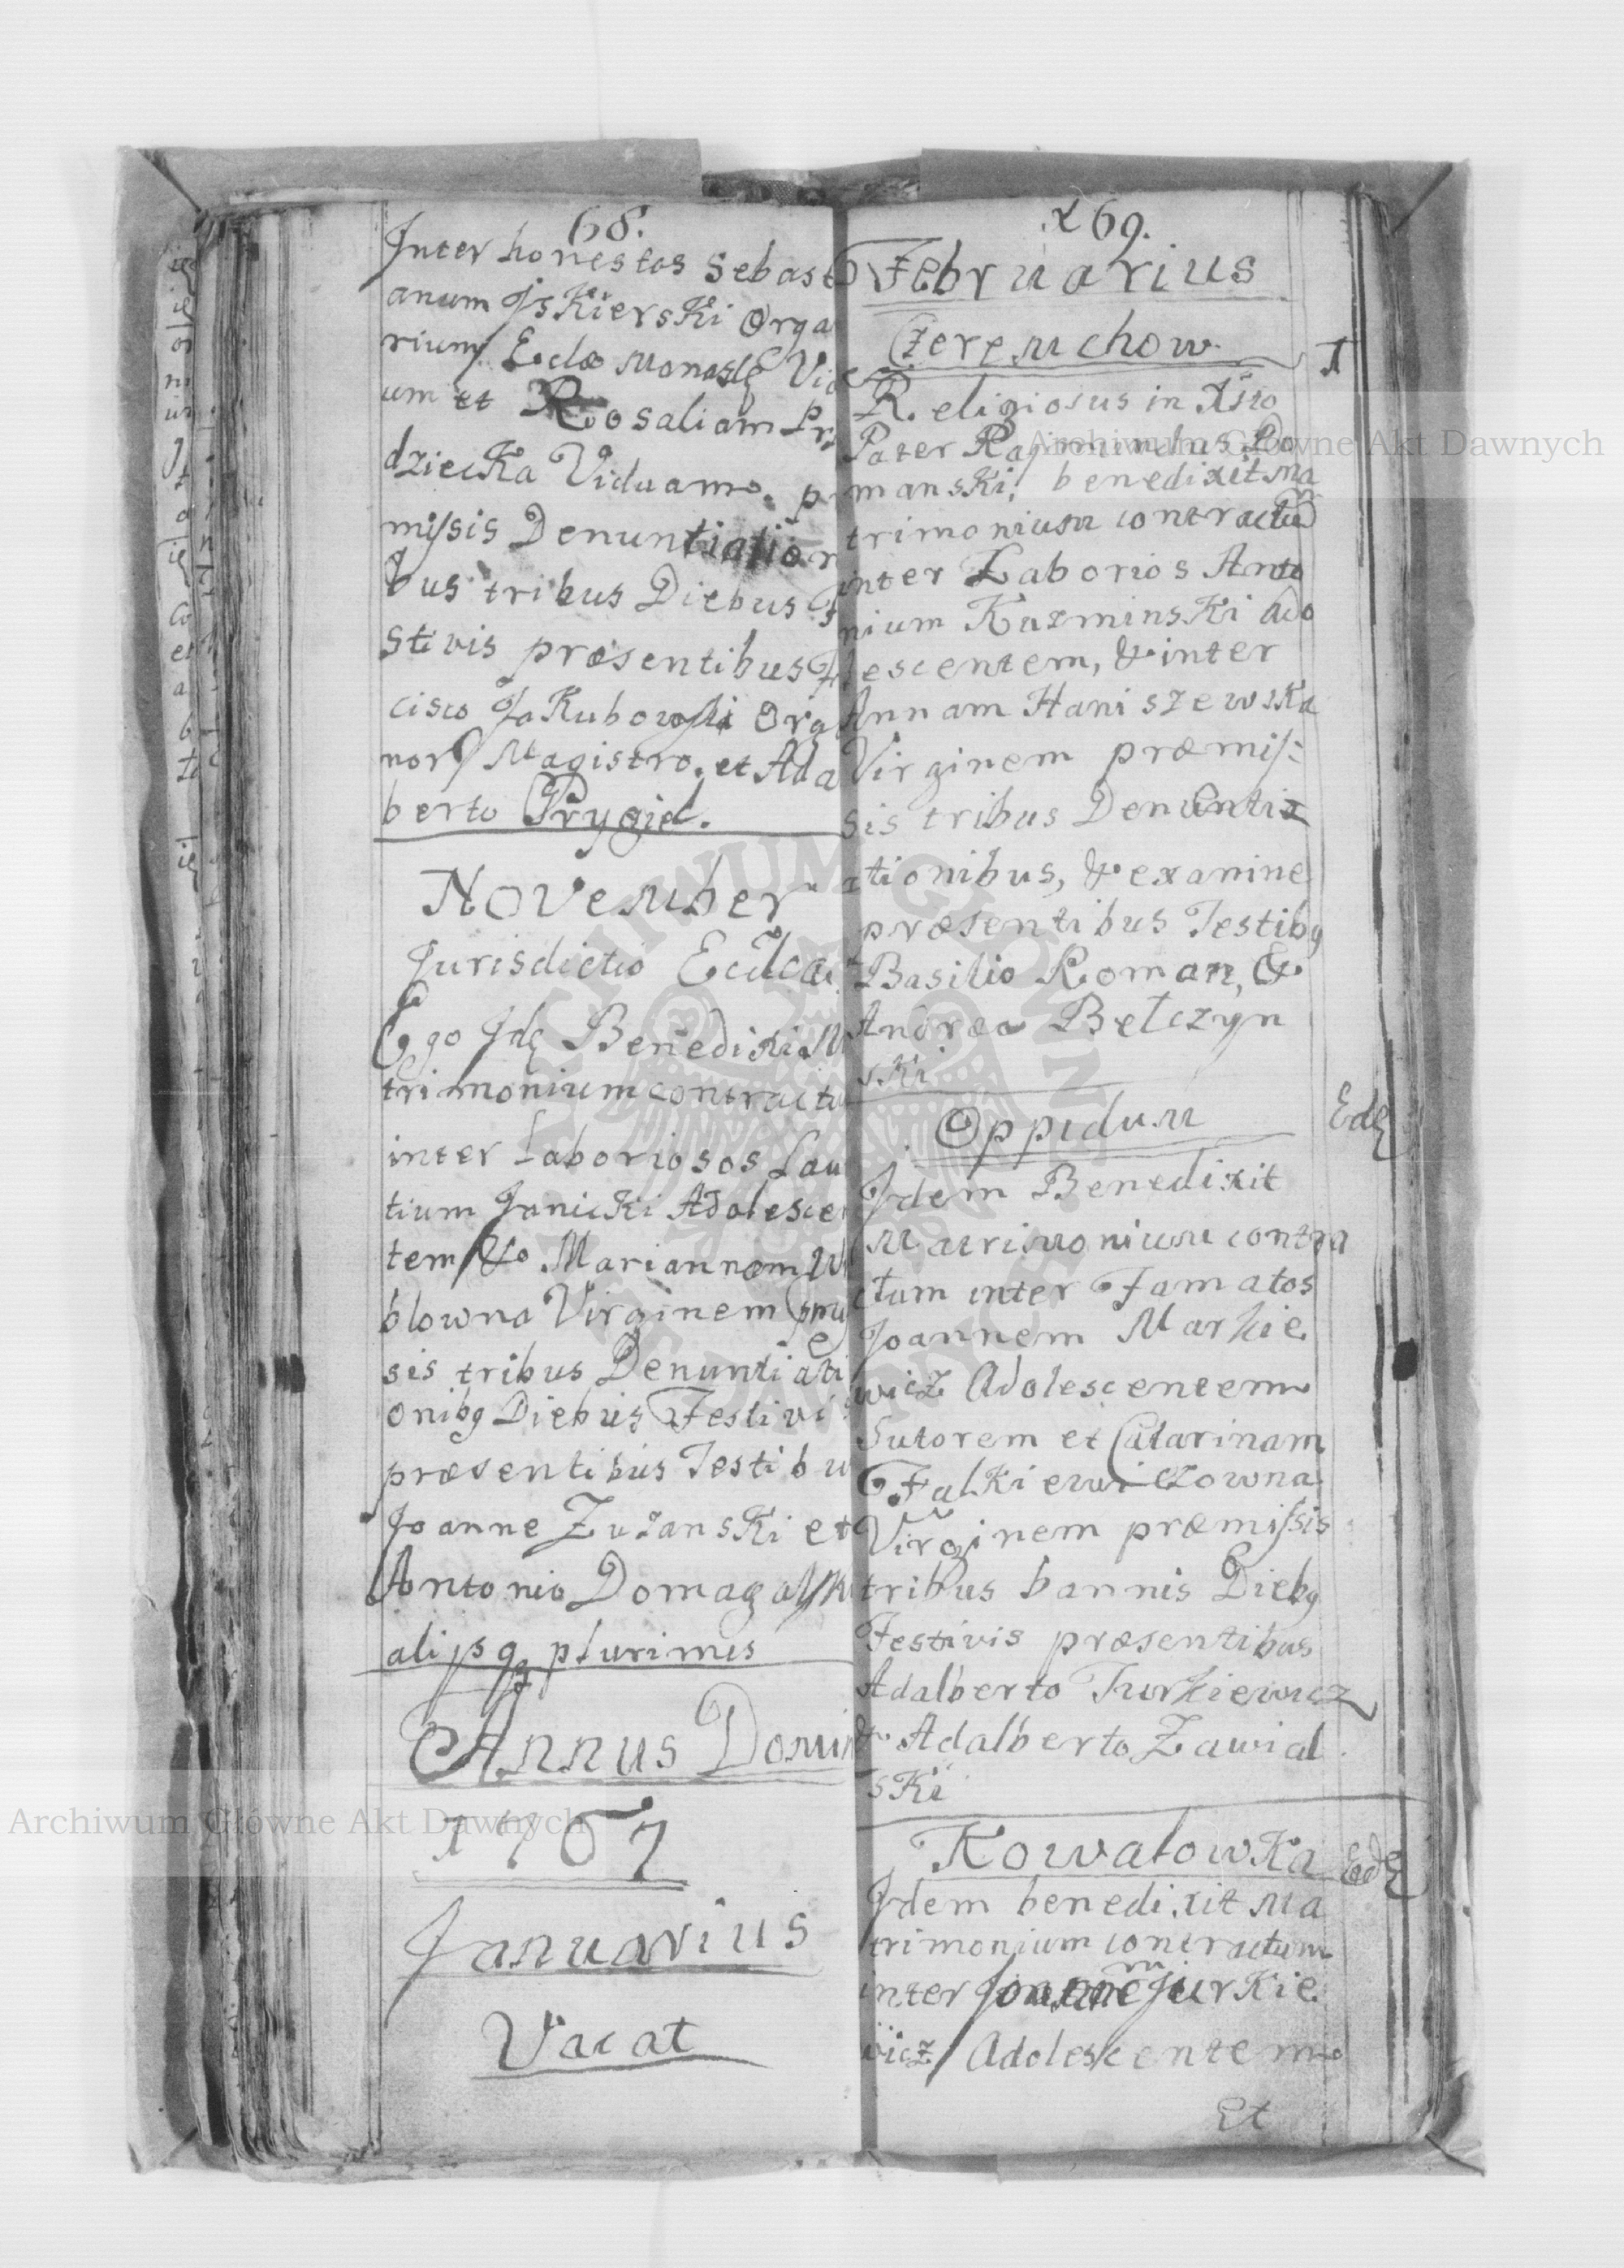 68.
Inter honestos Sebasti
anum Jskierski Orga
rium Eclæ Monast Vid
um et Rosaliam Pr
dziecka Viduam. p
missis Denuntiation
bus tribus Diebus Fe
stivis præsentibus Fr
cisco Jakubowski Orga
nor Magistro, et Ada
berto Prygiel.
November
Jurisdictio Eccl
Ego Jdē Benedixi M
trimonium contractu
inter Laboriosos Lau
tium Janicki Adolesce
tem & Mariannam W
blowna Virginem præ
sis tribus Denuntiati
onibq Diebus Festivi
præsentibus Testibu
Joanne Zuzanski et
Antonio Domagalsk
alijsq plurimis
Annus Domin
1767
Januarius
Vacat
69.
Februarius
Czeremchow
R. eligiosus in Xsto
Pater Rajmundus Do
manski, benedixit Ma
trimonium contractū
inter Laborios Anto
nium Kuzminski Ado
lescentem, & inter
Annam Haniszewska
Virginem præmis:
sis tribus Denuntia
ationibus, & examine
præsentibus Testibq
Basilio Roman, &
Andrea Belczyn
ski
Oppidum
Edē
Jdem Benedixit
Matrimonium contra
ctum inter Famatos
Joannem Markie
wicz Adolescentem
Sutorem et Catarinam
Falkiewiczowna
Virginem præmissis
tribus bannis Diebq
Festivis præsentibus
Adalberto Turkiewicz
& Adalberto Zawial
ski
Kowalowka
Edē
Jdem benedixit Ma
trimonium contractum
inter Joannem Jurkie
wicz Adolescentem
Et
Archiwum Główne Akt Dawnych
Archiwum Główne Akt Dawnych
ARCHIWUM GŁÓWNE AKT DAWNYCH